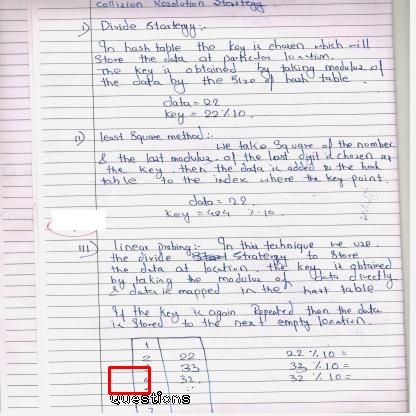 Collision Resolution Startegy
i) Divide Startegy:-
In hash table the key is chosen which will
store the data at particular location.
The key is obtained by taking modulus of
the data by the size of hash table.
data = 22
key = 22 % 10.
ii) least Square method:-
we take Square of the number
& the last modulus of the last digit is chosen as
the key, then the data is added to the hash
table to the index where the key point.
data = 22.
key = 484 % 10.
iii) linear probing:- In this technique we use
the divide Strategy to store
the data at location the key is obtained
by taking the modulus of data directly
& data is mapped in the hash table
If the key is again Repeated then the data
is stored to the next empty location.
1
2 22 22 % 10 =
33 33 % 10 =
32 32 % 10 =
Questions
7